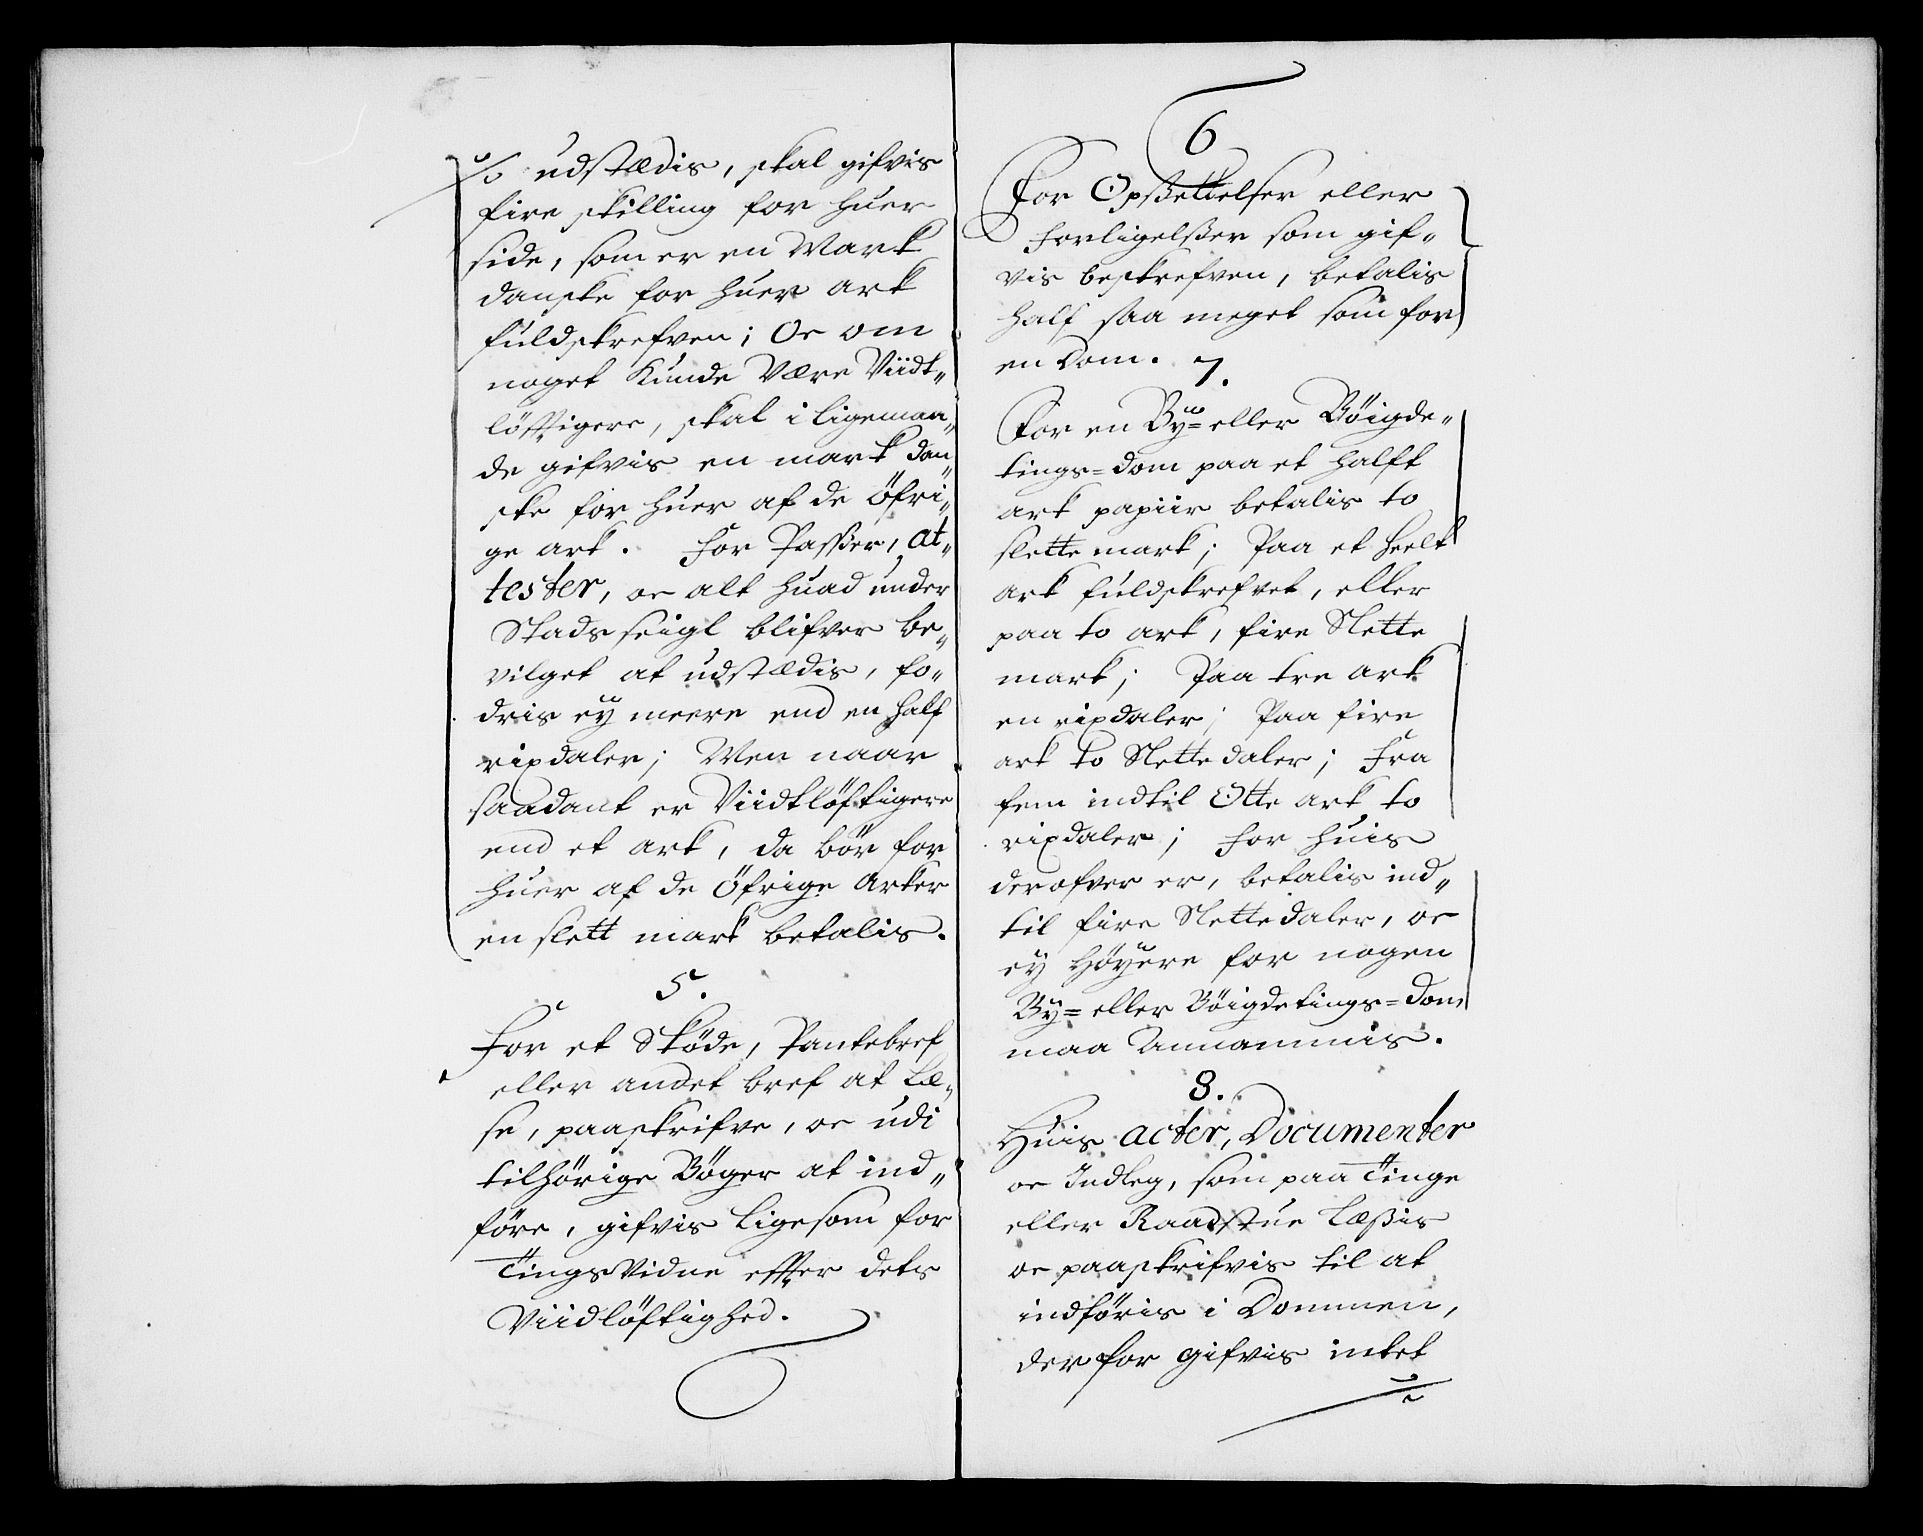 ./. udstædis, skal gifvis
fire skilling for huer
side, som er en Mark
danske for huer ark
fuldskrefven; Oc om
noget Kunde Være Viidt„
löfftigere, skal i ligemaa„
de gifvis en mark dan„
ske for huer af de öfri„
ge ark. For Passer, at„
tester, oc alt huad under
Stads seigl blifver be„
vilget at udstædis, fo„
dris eÿ meere end en half
rixdaler; Men naar
saadant er Viidtlöftigere
end et ark, da bör for
huer af de Öfrige Arker
en slett mark betalis.
5.
For et Sköde, Pantebref
eller andet bref at Læ„
se, paaskrifve, oc udi
tilhörige Böger at ind„
före, gifvis ligesom for
TingsVidne effter dets
Viidlöftighed.
6
For Opßettelser eller
Forligelßer som gif„
vis beskrefven, betalis
half saa meget som for
en Dom.
7.
For en Bÿ= eller Böigde„
tings=dom paa et halft
ark papiir betalis to
slette mark; Paa et heelt
ark fuldskrefvet, eller
paa to ark, fire Slette
mark; Paa tre Ark
en rixdaler; Paa fire
ark to Slettedaler; Fra
fem indtil Otte ark to
rixdaler; For huis
derofver er, betalis ind„
til fire Slettedaler, oc
eÿ Höÿere for nogen
Bÿ= eller Böigdetings=dom
maa Annammis.
8.
Huis acter, Documenter
oc Indleg, som paa Tinge
eller Raadstue Læßis
oc paaskrifvis til at
indföris i Dommen,
der for gifvis intet
./.